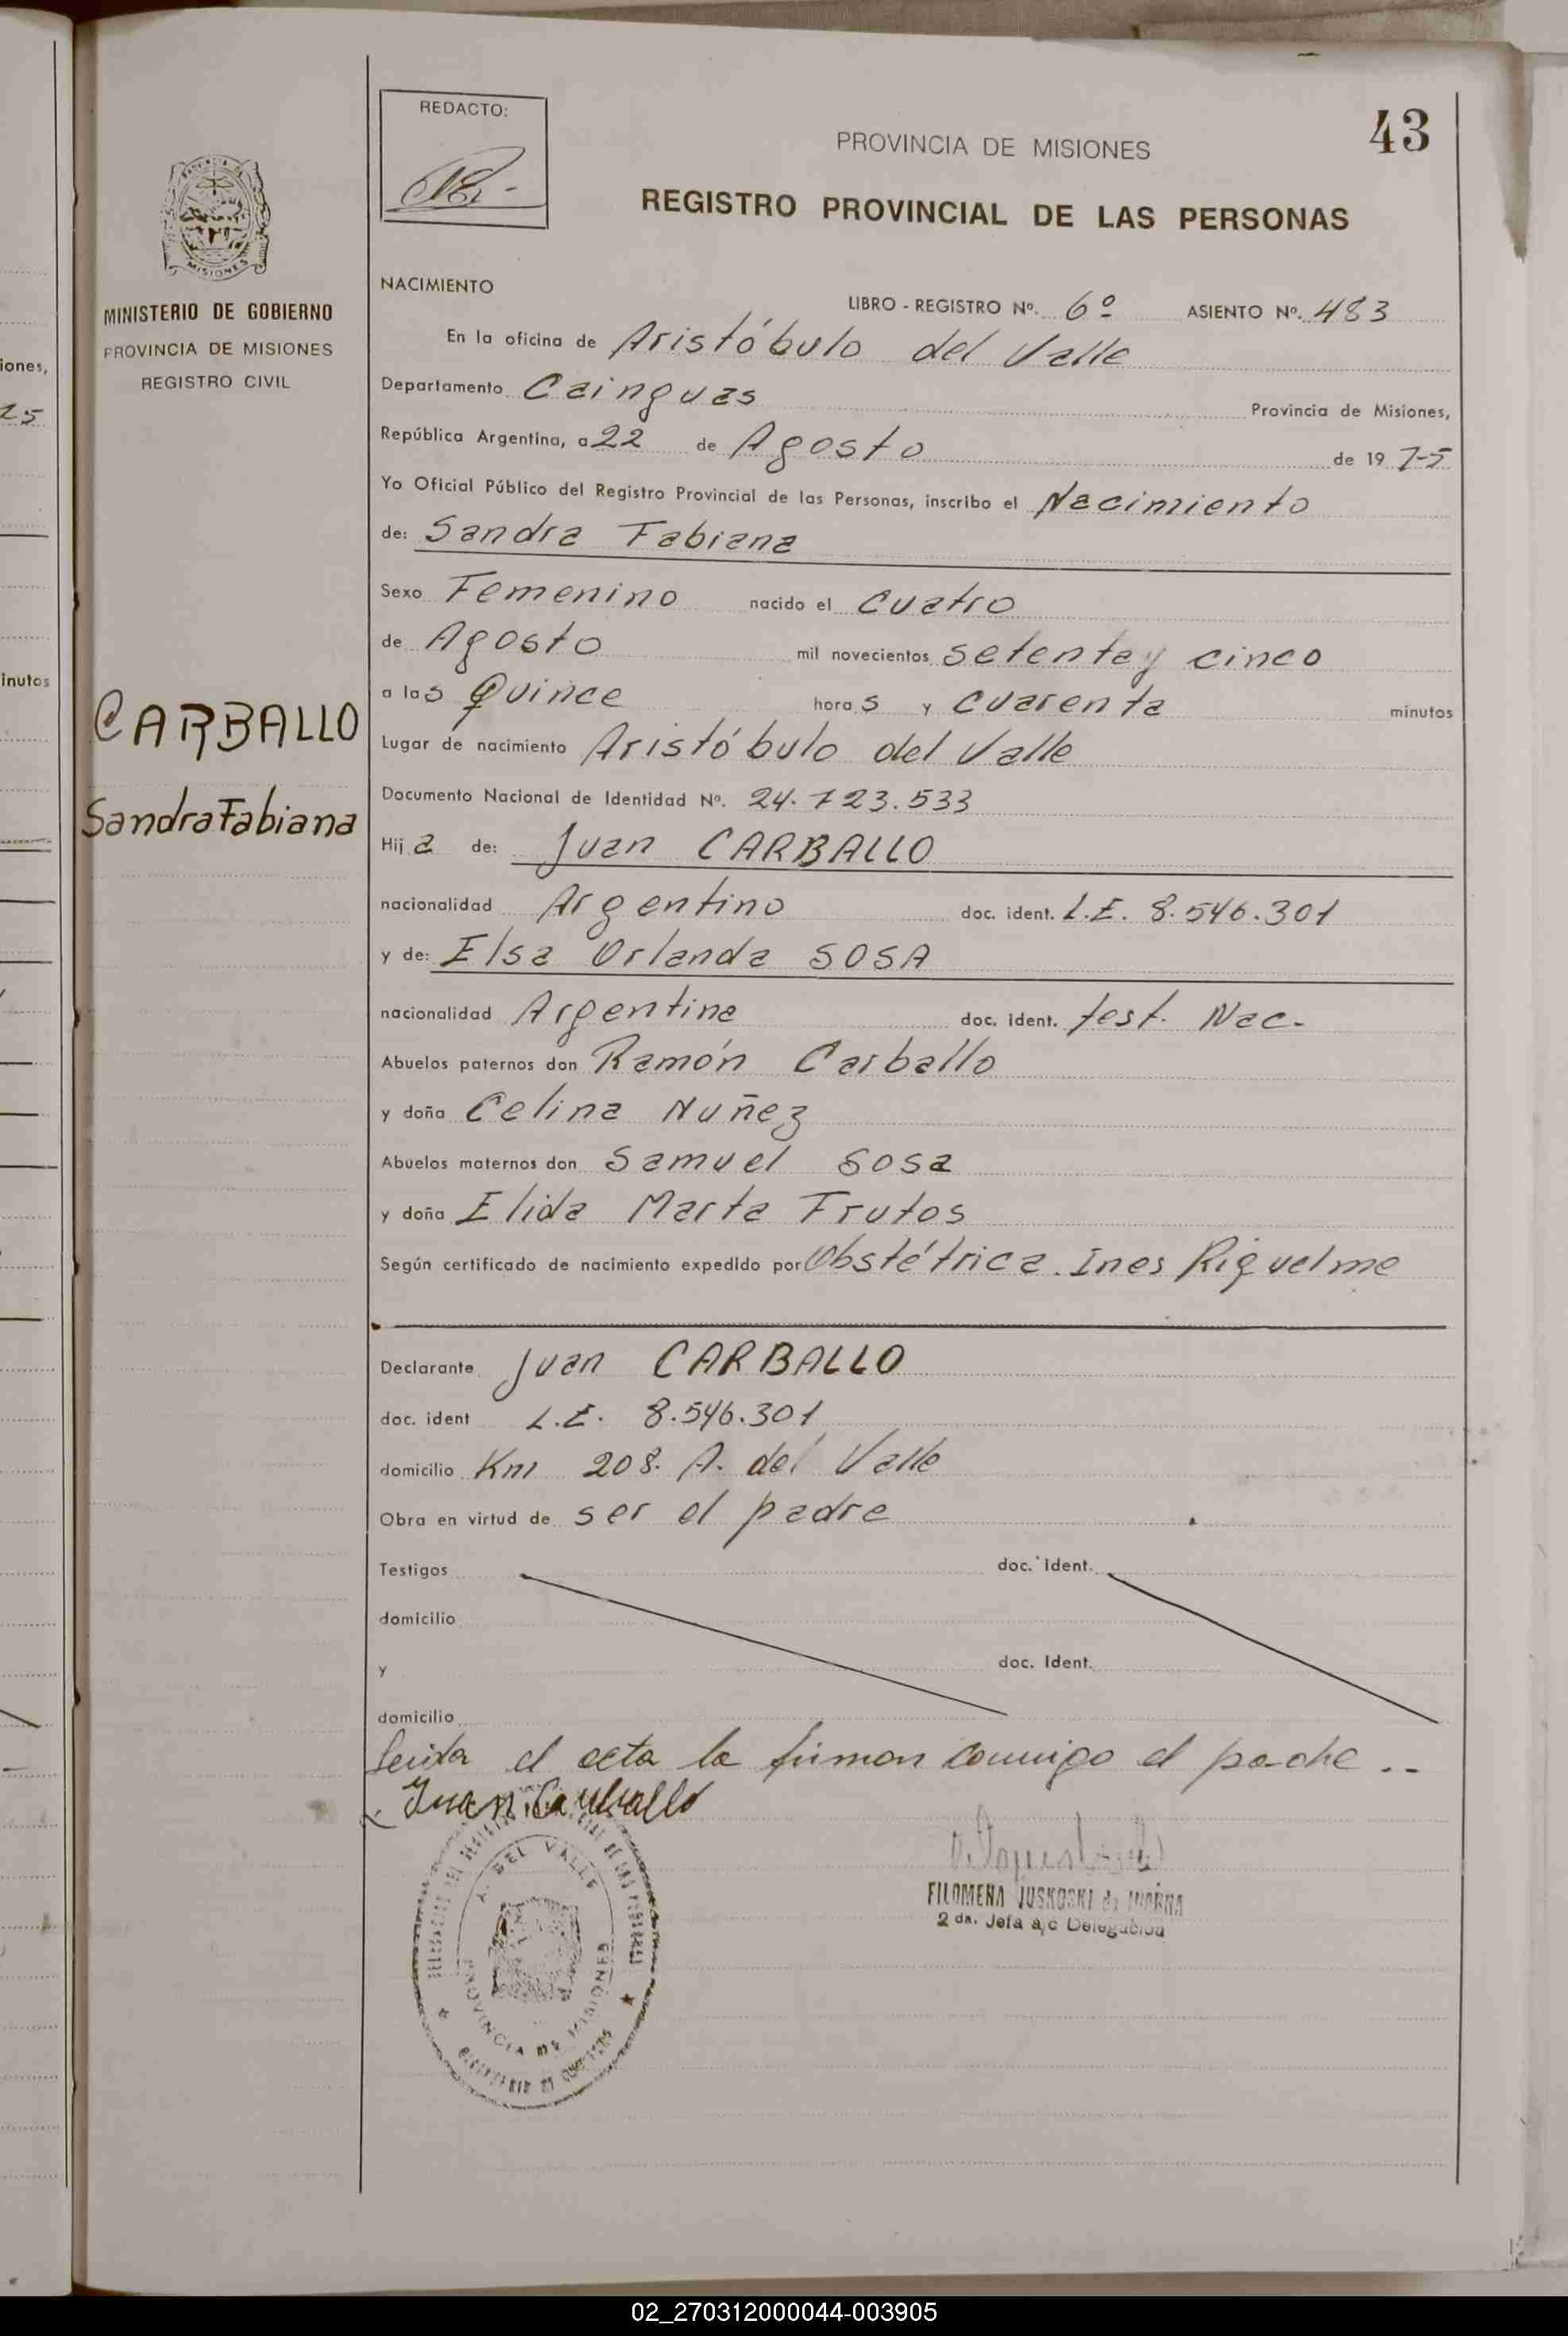 iones,
25
inutos
MISIONES
MINISTERIO DE GOBIERNO
PROVINCIA DE MISIONES
REGISTRO CIVIL
CARBALLO
Sandra Fabiana
REDACTO:
43
PROVINCIA DE MISIONES
REGISTRO PROVINCIAL DE LAS PERSONAS
NACIMIENTO
LIBRO - REGISTRO Nº. 6º ASIENTO Nº. 483
En la oficina de Aristóbulo del Valle
Departamento Cainguas Provincia de Misiones,
República Argentina, a 22 de Agosto de 19 75
Yo Oficial Público del Registro Provincial de las Personas, inscribo el Nacimiento
de: Sandra Fabiana
Sexo Femenino nacido el cuatro
de Agosto mil novecientos setenta y cinco
a las Quince horas y cuarenta minutos
Lugar de nacimiento Aristóbulo del Valle
Documento Nacional de Identidad Nº. 24.723.533
Hija de: Juan CARBALLO
nacionalidad Argentino doc. ident. L.E. 8.546.301
y de: Elsa Orlanda SOSA
nacionalidad Argentina doc. ident. test. Nac-
Abuelos paternos don Ramón Carballo
y doña Celina Nuñez
Abuelos maternos don Samuel Sosa
y doña Elida Marta Frutos
Según certificado de nacimiento expedido por Obstétrica. Ines Riquelme
Declarante Juan CARBALLO
doc. ident L.E. 8.546.301
domicilio Km 208. A. del Valle
Obra en virtud de ser el padre
Testigos doc. ident.
domicilio
y doc. Ident.
domicilio
Leida el acta la firman conmigo el padre ..
Juan Carballo
A. DEL VALLE
PROVINCIA DE MISIONES
FILOMENA JUSKOSKI de
2 da. Jefa a/c Delegación
02_270312000044-003905